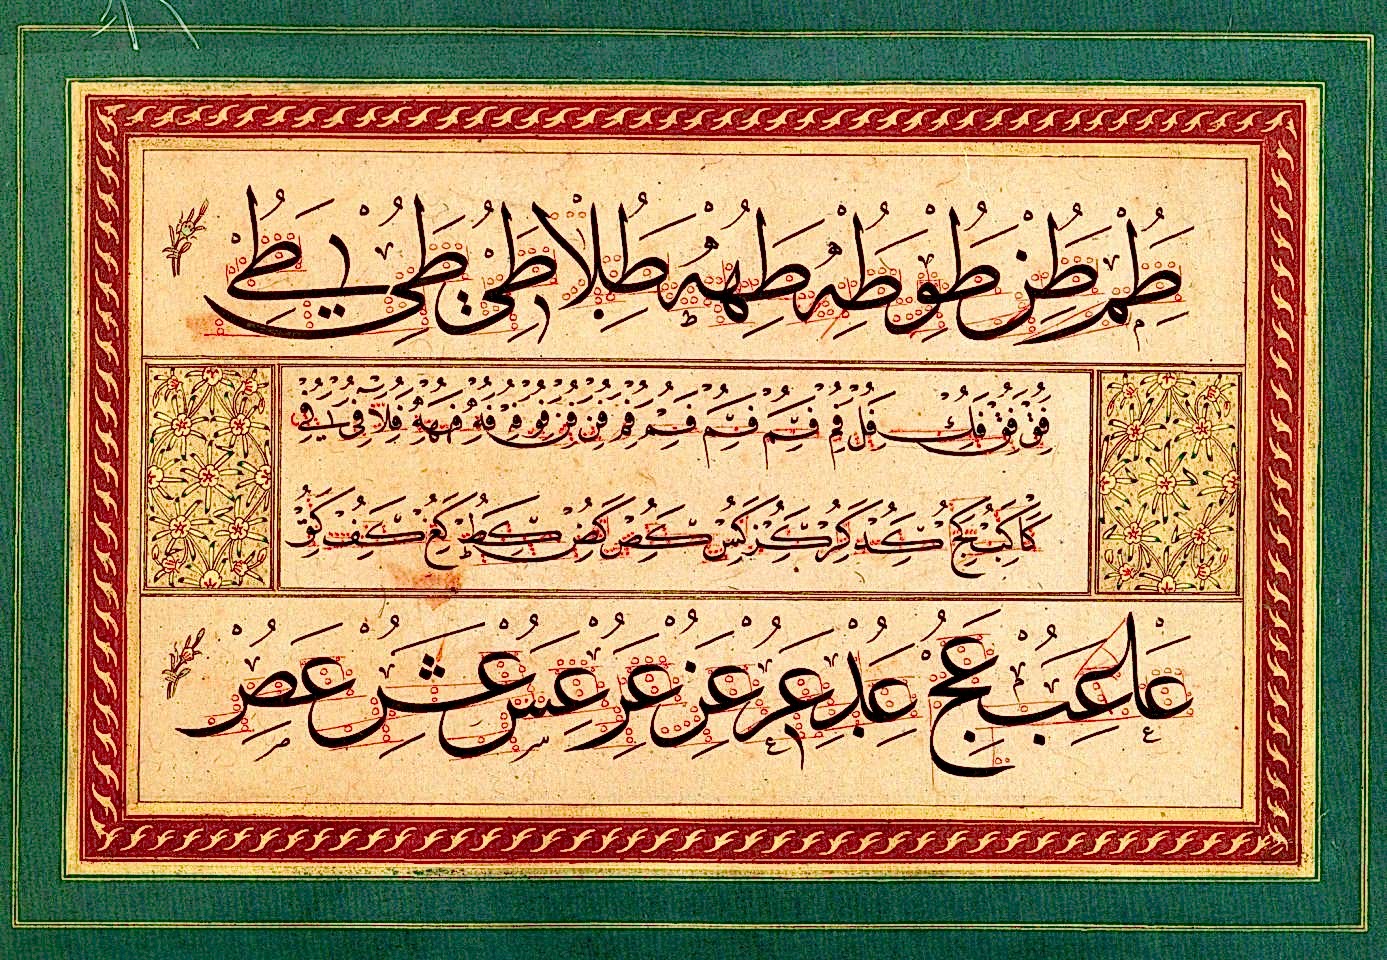 طم طن طو طه طهه طلا طي طي طي
فق فق فك فل فم فم فم فم فم فن فن فو فه فه فهه فلا في في
كا كب كج كد كر كر كس كص كض كط كع كف كق
عا عب عج عد عر عز عر عس عش عص